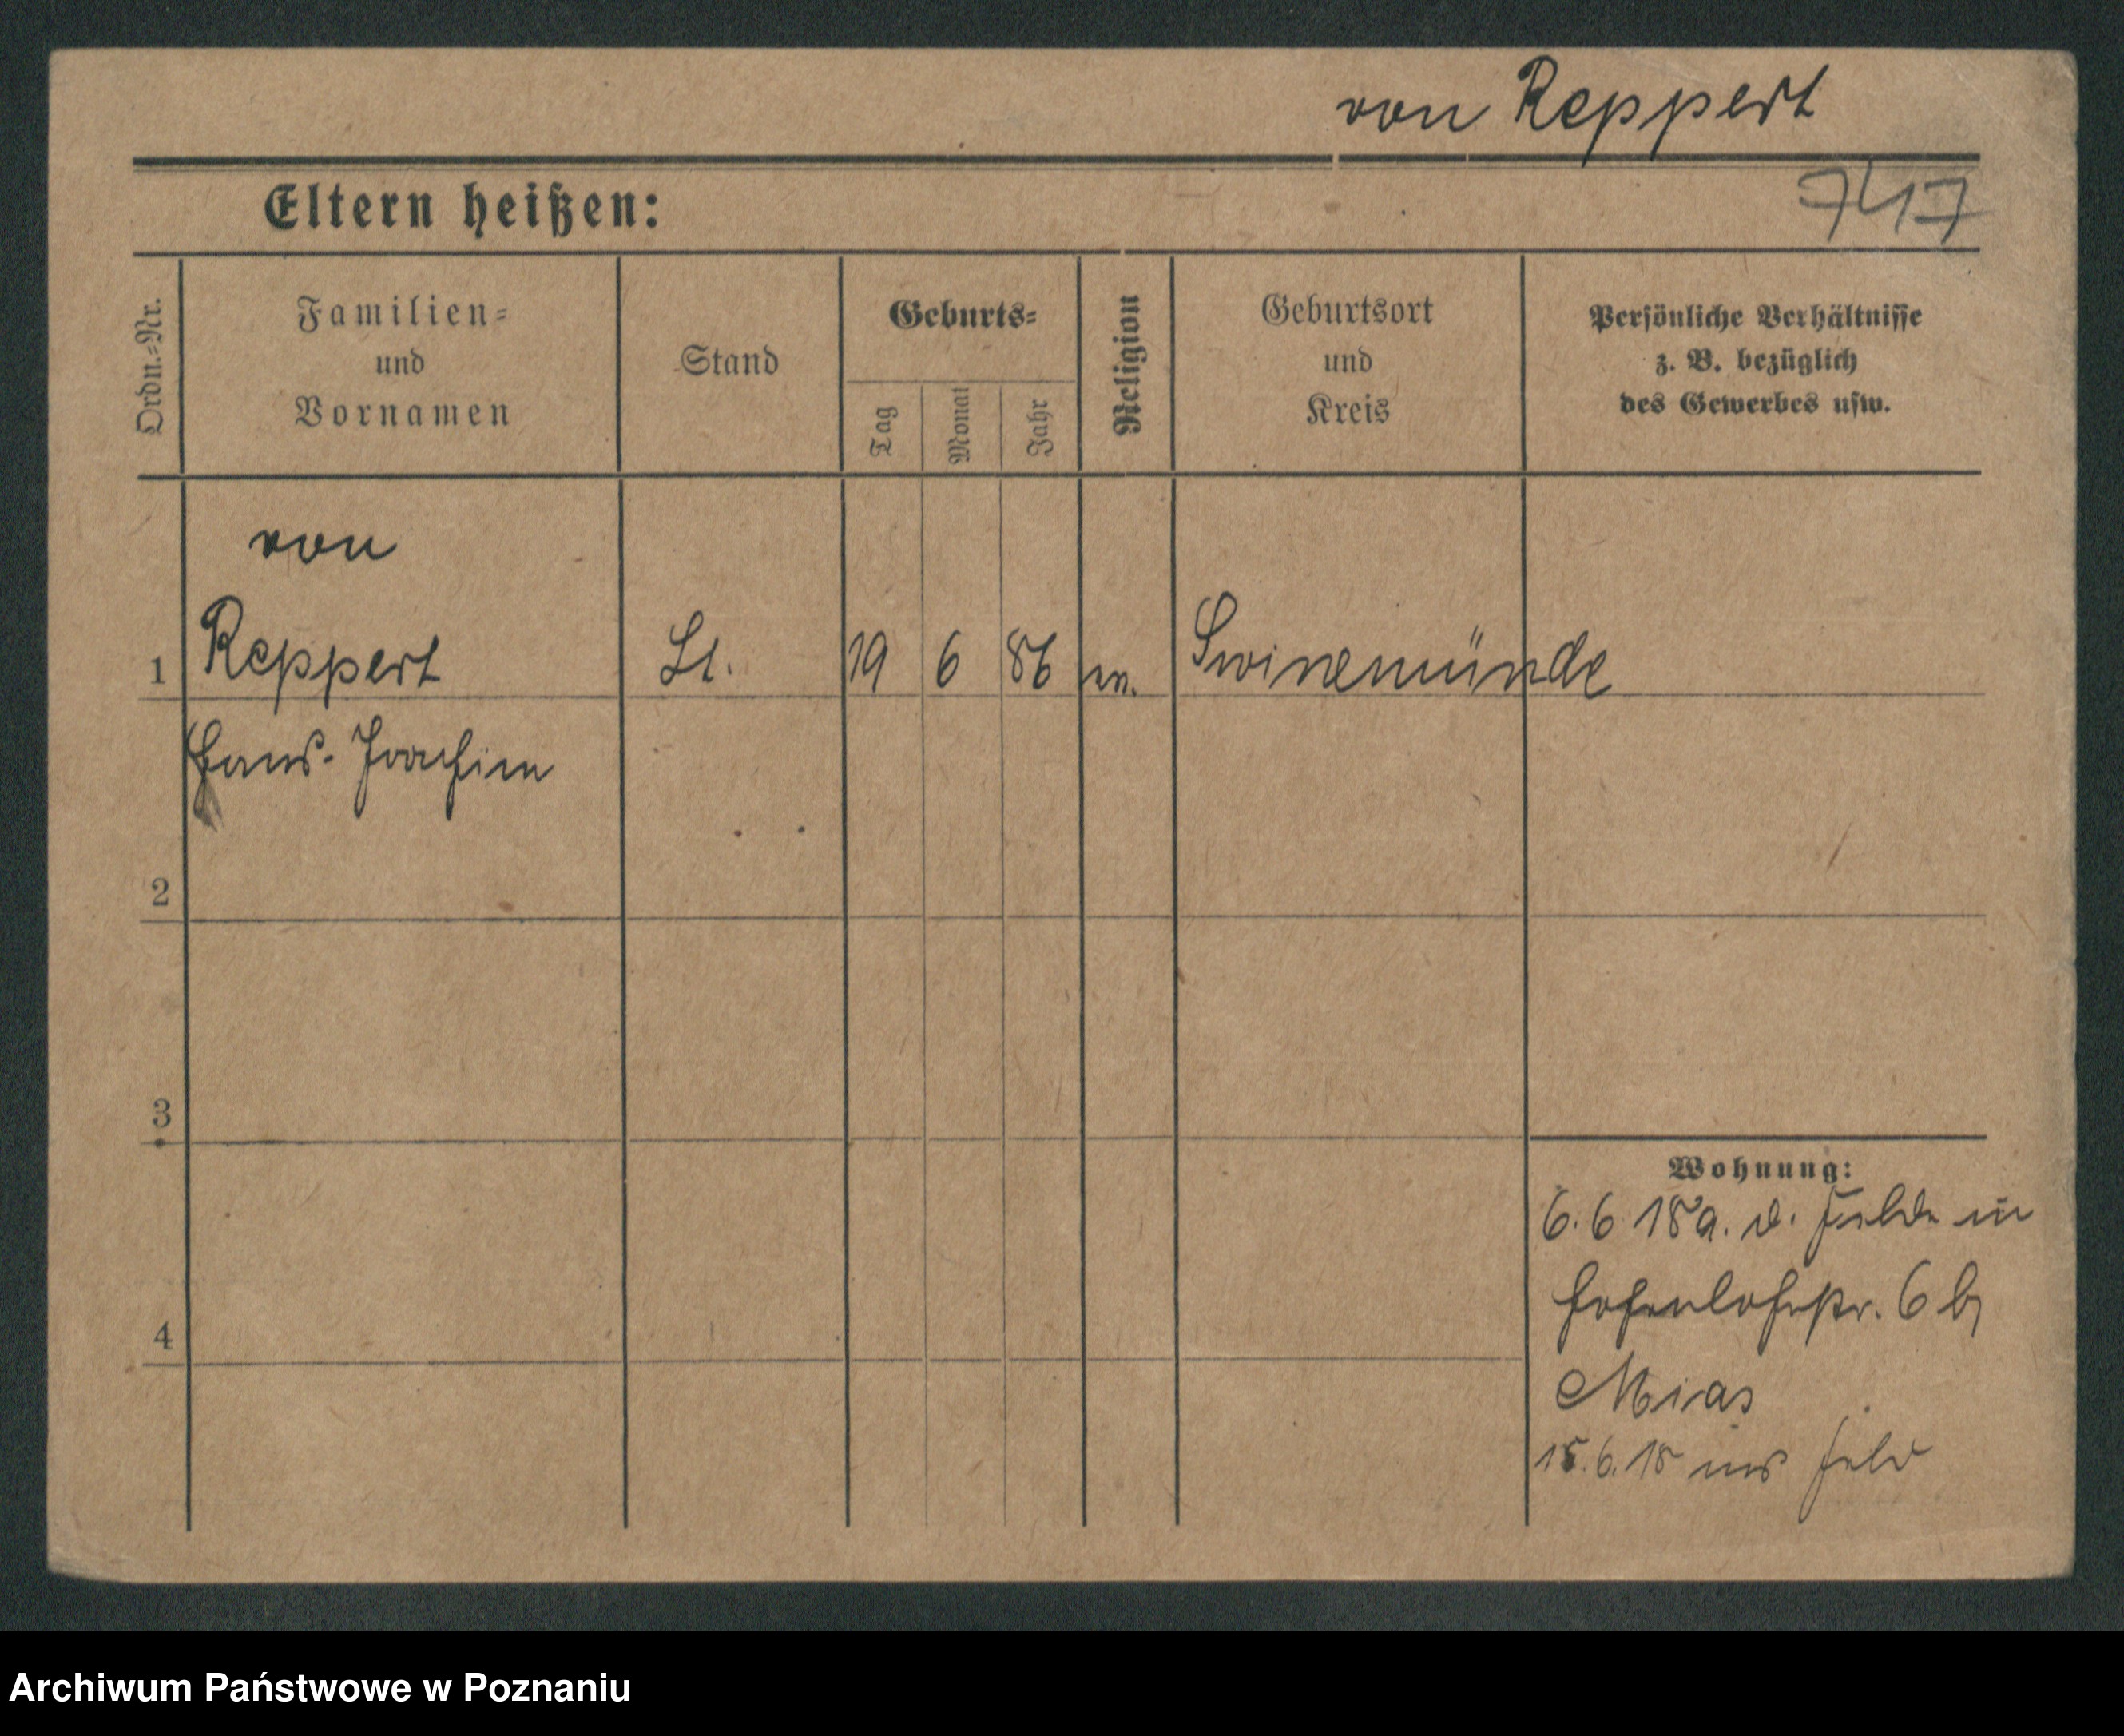 von Reppert
747
Eltern heißen:
Ordn.-Nr.
Familien-
und
Vornamen
Stand
Geburts-
Tag
Monat
Jahr
Religion
Geburtsort
und
Kreis
Persönliche Verhältnisse
z. B. bezüglich
des Gewerbes usw.
von
1 Reppert Lt. 19 6 86 ev. Swinemünde
Hans-Joachim
2
3
4
Wohnung:
6.6.18 a. d. Felde in
Hohenlohestr. 6 b
Mias
15.6.18 ins Feld
Archiwum Państwowe w Poznaniu